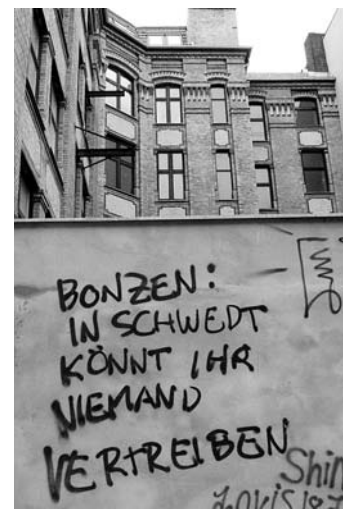 BONZEN:
IN SCHWEDT
KÖNNT IHR
NIEMAND
VERTREIBEN
Shin